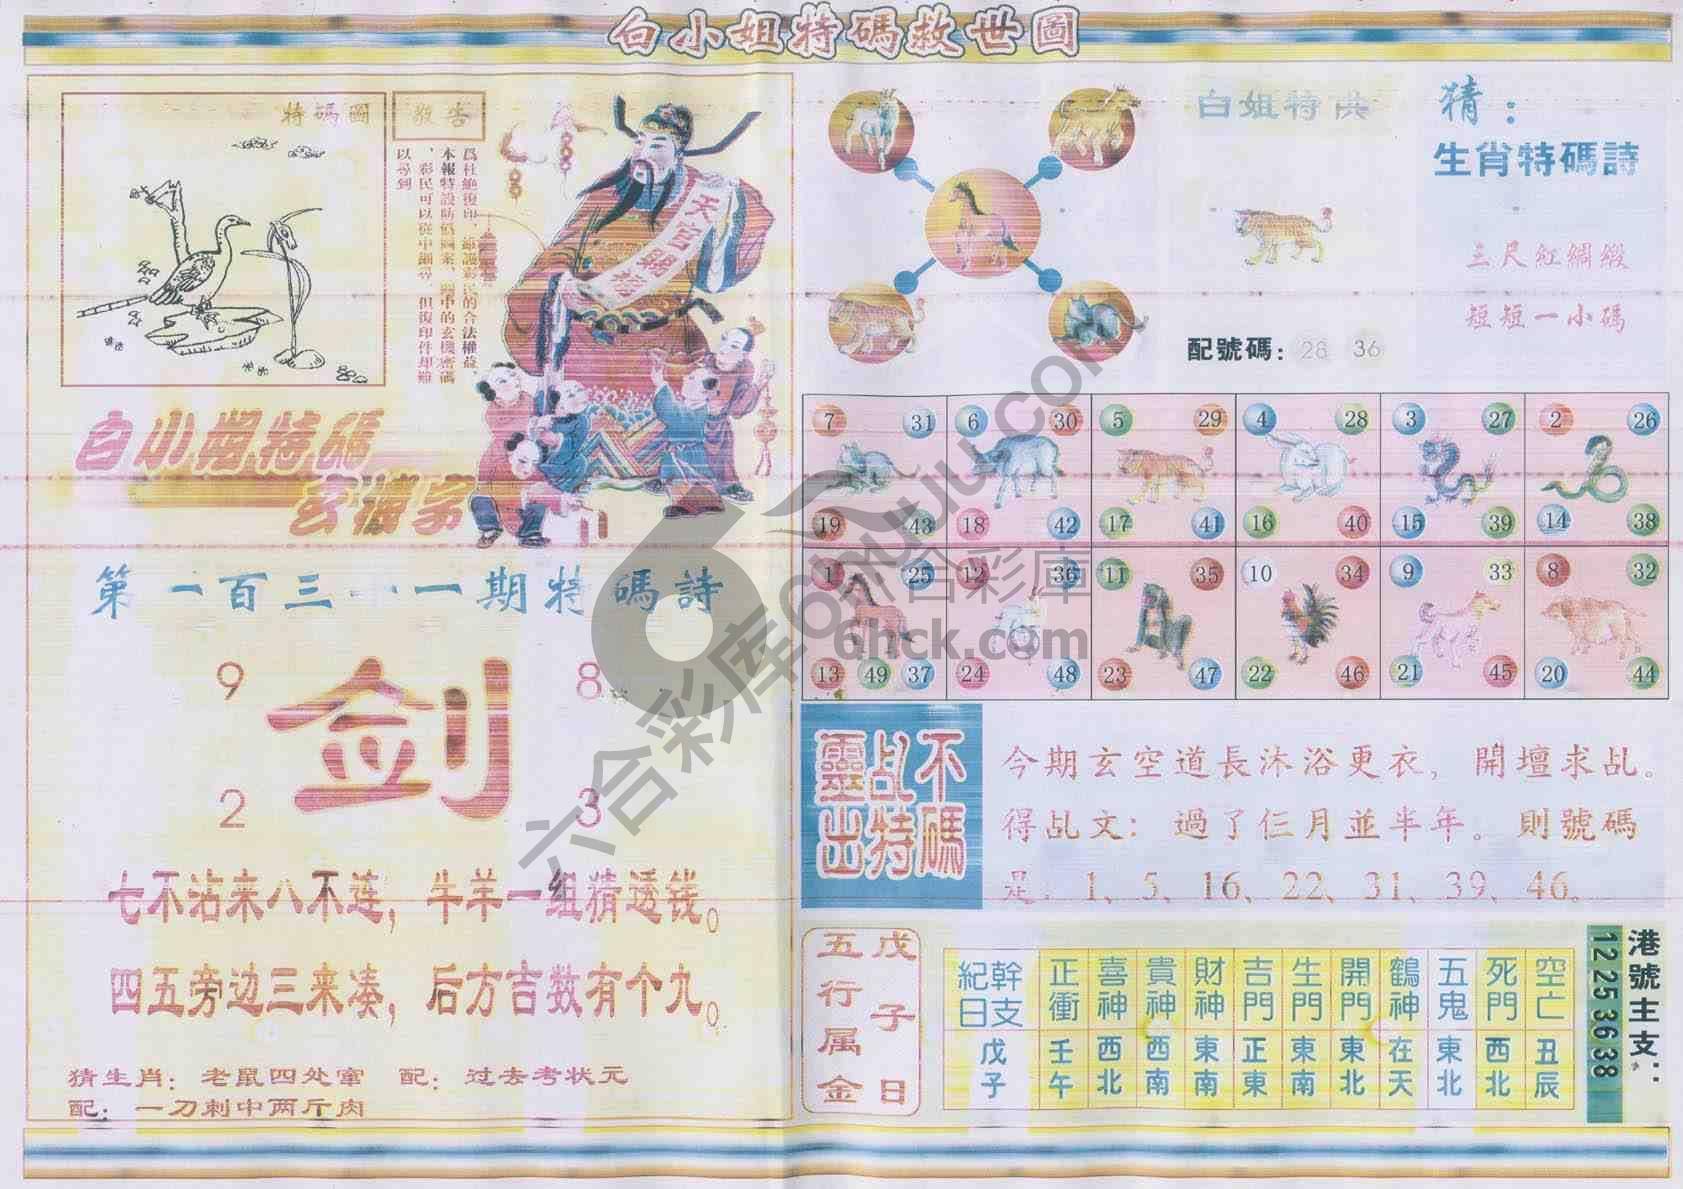 白小姐特碼救世圖
特碼圖
敬告
爲杜絶復印、維護彩民的合法權益
本報特設防僞圖案、圖中的玄機密碼
、彩民可以從中細尋、但復印件却難
以尋到
天官賜福
白小姐特碼
玄機字
第一百三十一期特碼詩
9
8
剑
2
3
七不沾来八不连，牛羊一组精透钱。
四五旁边三来凑，后方吉数有个九。
猜生肖：老鼠四处窜 配：过去考状元
配：一刀刺中两斤肉
白姐特供
配號碼：28 36
猜：
生肖特碼詩
三尺紅綢緞
短短一小碼
7 31 6 30 5 29 4 28 3 27 2 26
19 43 18 42 17 41 16 40 15 39 14 38
1 25 12 36 11 35 10 34 9 33 8 32
13 49 37 24 48 23 47 22 46 21 45 20 44
不碼
乩特
靈出
今期玄空道長沐浴更衣，開壇求乩。
得乩文：過了仨月並半年。則號碼
是：1、5、16、22、31、39、46。
戊子日
五行属金
幹支紀日 正衝 喜神 貴神 財神 吉門 生門 開門 鶴神 五鬼 死門 空亡
戊子 壬午 西北 西南 東南 正東 東南 東北 在天 東北 西北 丑辰
港號主支：
12 25 36 38
六合彩库 6hcktuku.com
六合彩庫
6hck.com